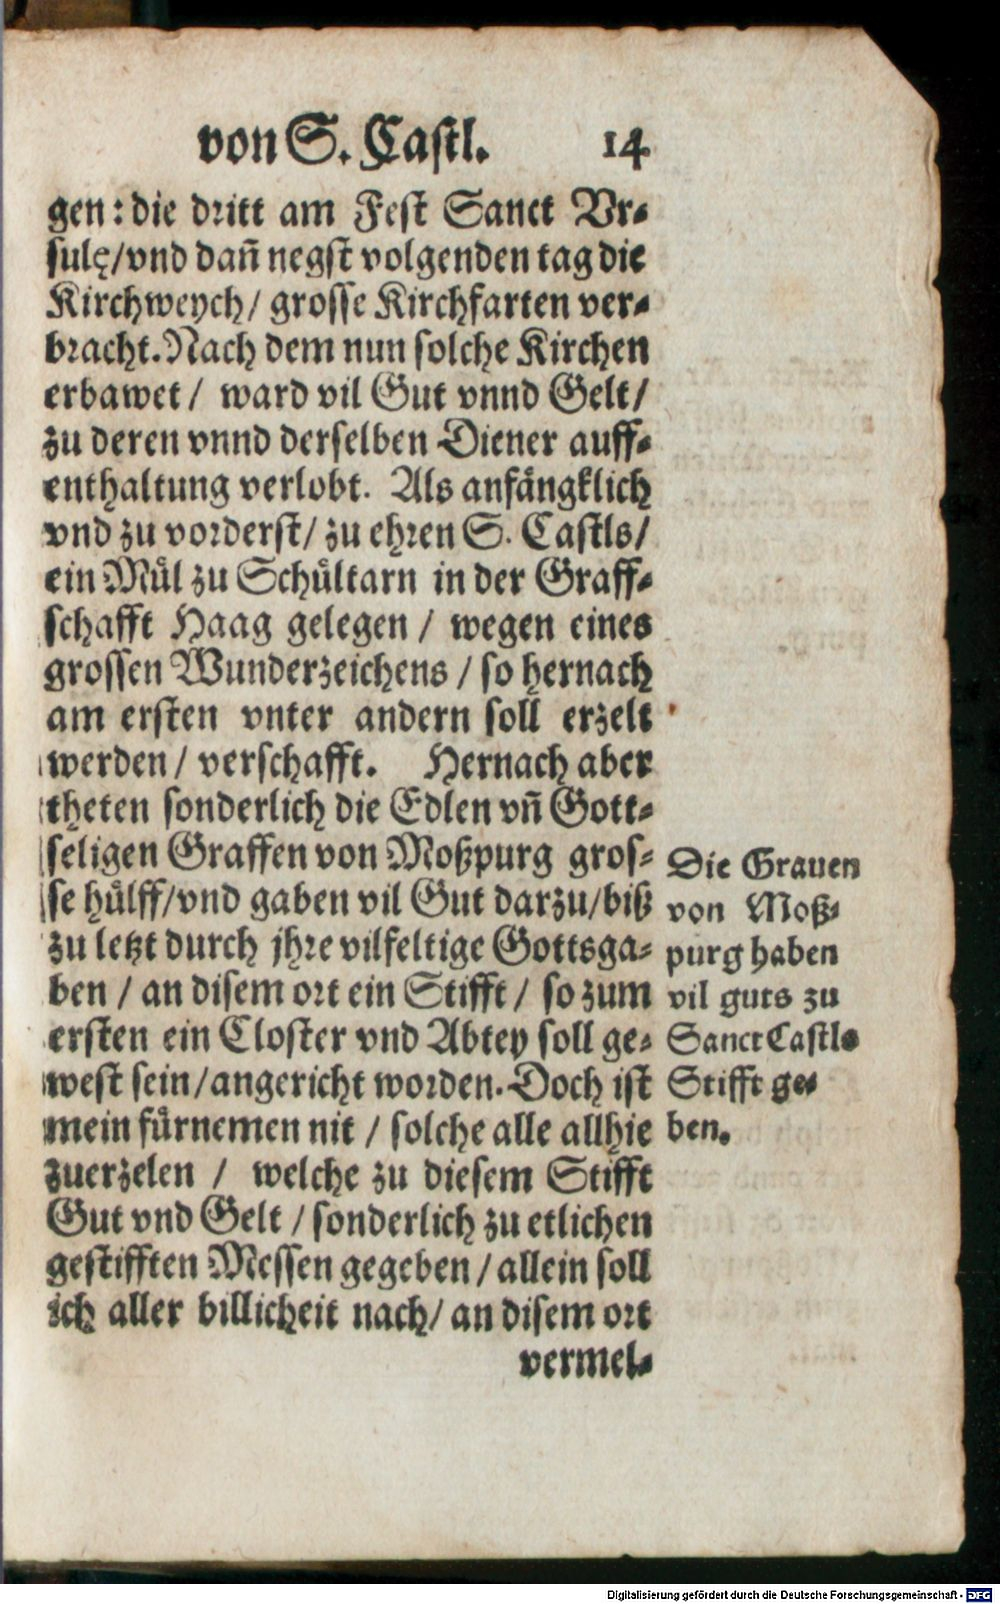 von S. Castl. 14
gen: die dritt am Fest Sanct Vr-
sulę/vnd dañ negst volgenden tag die
Kirchweych/ grosse Kirchfarten ver-
bracht. Nach dem nun solche Kirchen
erbawet / ward vil Gut vnnd Gelt/
zu deren vnnd derselben Diener auff-
enthaltung verlobt. Als anfängklich
vnd zu vorderst/ zu ehren S. Castls/
ein Mül zu Schültarn in der Graff-
schafft Haag gelegen / wegen eines
grossen Wunderzeichens / so hernach
am ersten vnter andern soll erzelt
werden / verschafft. Hernach aber
theten sonderlich die Edlen vñ Gott-
seligen Graffen von Moßpurg gros-
se hülff/vnd gaben vil Gut darzu/biß
zu letzt durch jhre vilfeltige Gottsga-
ben / an disem ort ein Stifft / so zum
ersten ein Closter vnd Abtey soll ge-
west sein/angericht worden. Doch ist
mein fürnemen nit / solche alle allhie
zuerzelen / welche zu diesem Stifft
Gut vnd Gelt / sonderlich zu etlichen
gestifften Messen gegeben / allein soll
ich aller billicheit nach/ an disem ort
vermel-
Die Grauen
von Moß-
purg haben
vil guts zu
Sanct Castls
Stifft ge-
ben.
Digitalisierung gefördert durch die Deutsche Forschungsgemeinschaft - DFG